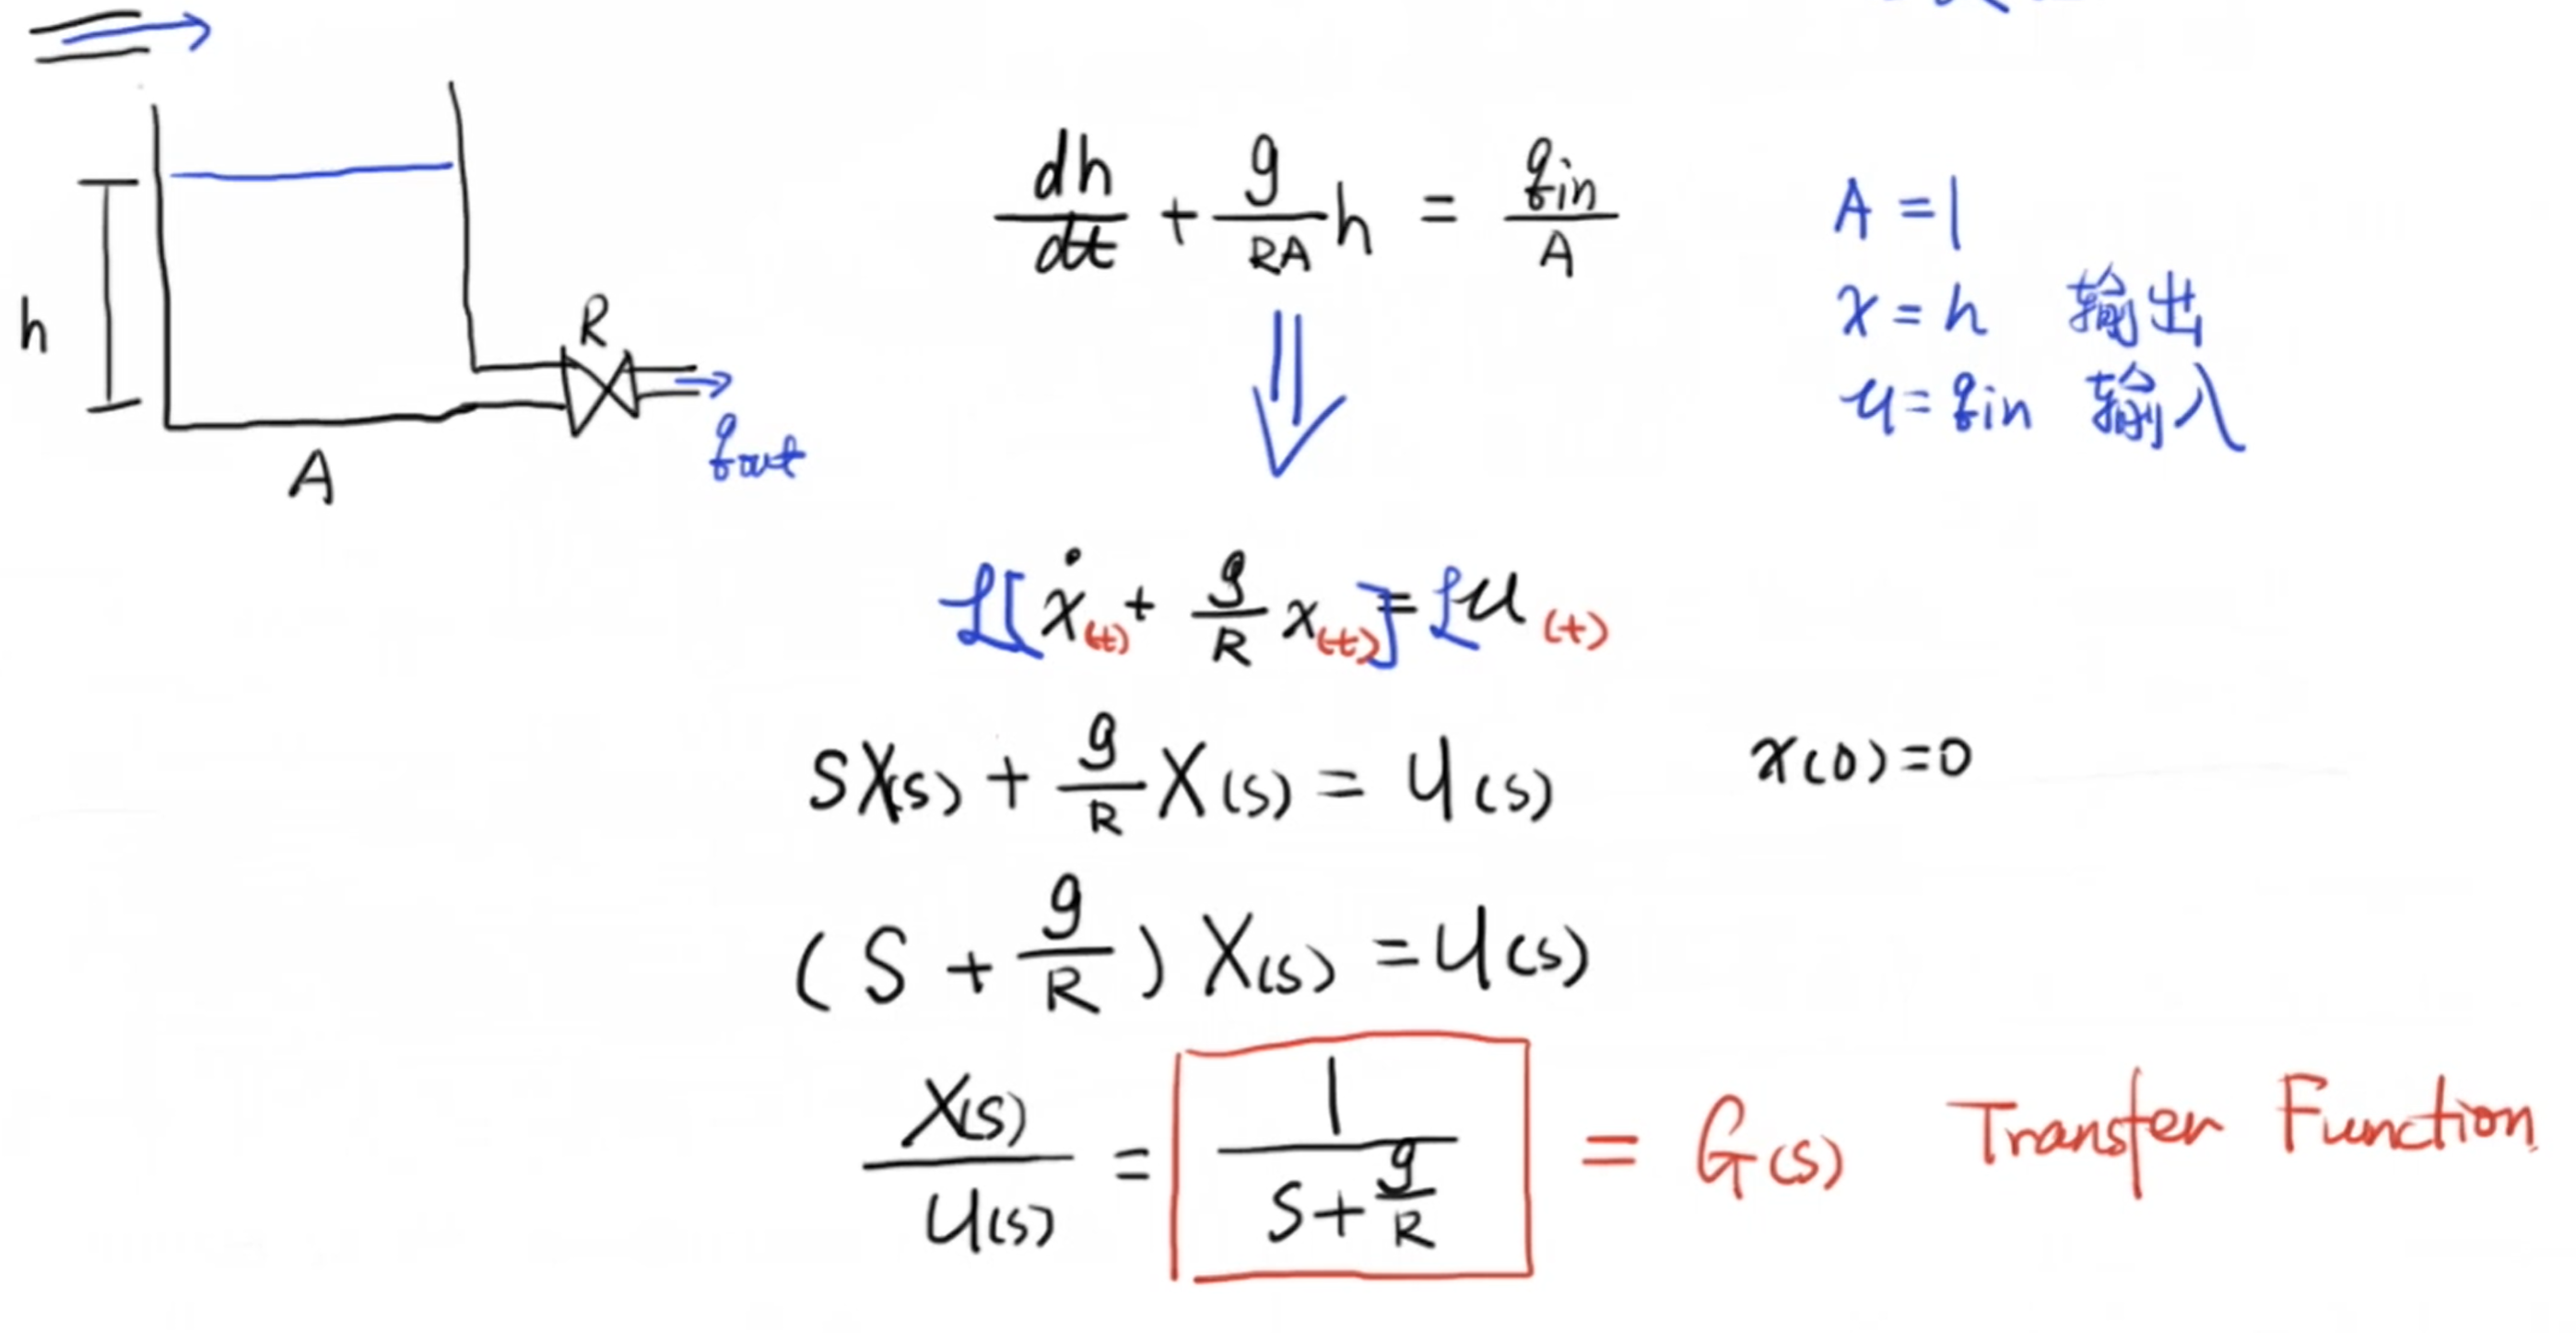 h
R
q_out
A
dh/dt + g/RA h = q_in/A
A = 1
x = h 输出
u = q_in 输入
ℒ[ẋ(t) + g/R x(t)] = ℒu(t)
sX(s) + g/R X(s) = U(s)
x(0) = 0
(S + g/R) X(s) = U(s)
X(s)/U(s) = 1/(S + g/R) = G(s) Transfer Function